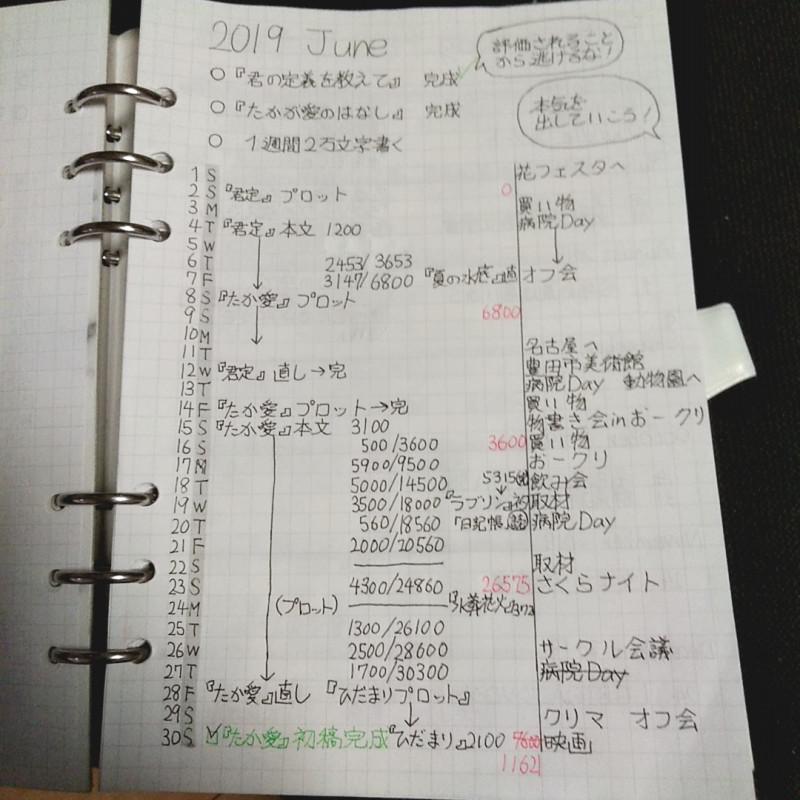 2019 June
評価されること
から逃げるな!
○『君の定義を教えて』 完成
○『たかが愛のはなし』 完成
本気を
出していこう!
○ 1週間2万文字書く
1 S 花フェスタへ
2 S 『君定』プロット 0
3 M 買い物
4 T 『君定』本文 1200 病院Day
5 W
6 T 2453/3653
7 F 3147/6800 『夏の水底』 オフ会
8 S 『たか愛』プロット
9 S 6800
10 M
11 T 名古屋へ
12 W 『君定』直し→完 豊田市美術館
13 T 病院Day 動物園へ
14 F 『たか愛』プロット→完 買い物
15 S 『たか愛』本文 3100 物書き会inおークリ
16 S 500/3600 3600 買い物
17 M 5900/9500 おークリ
18 T 5000/14500 飲み会
19 W 3500/18000 『ラプリン』 取材
20 T 560/18560 『日記帳』 病院Day
21 F 2000/20560
22 S 取材
23 S 4300/24860 26575 さくらナイト
24 M (プロット) 『水葬花火』
25 T 1300/26100
26 W 2500/28600 サークル会議
27 T 1700/30300 病院Day
28 F 『たか愛』直し 『ひだまりプロット』
29 S クリマ オフ会
30 S 『たか愛』初稿完成 『ひだまり』2100 映画